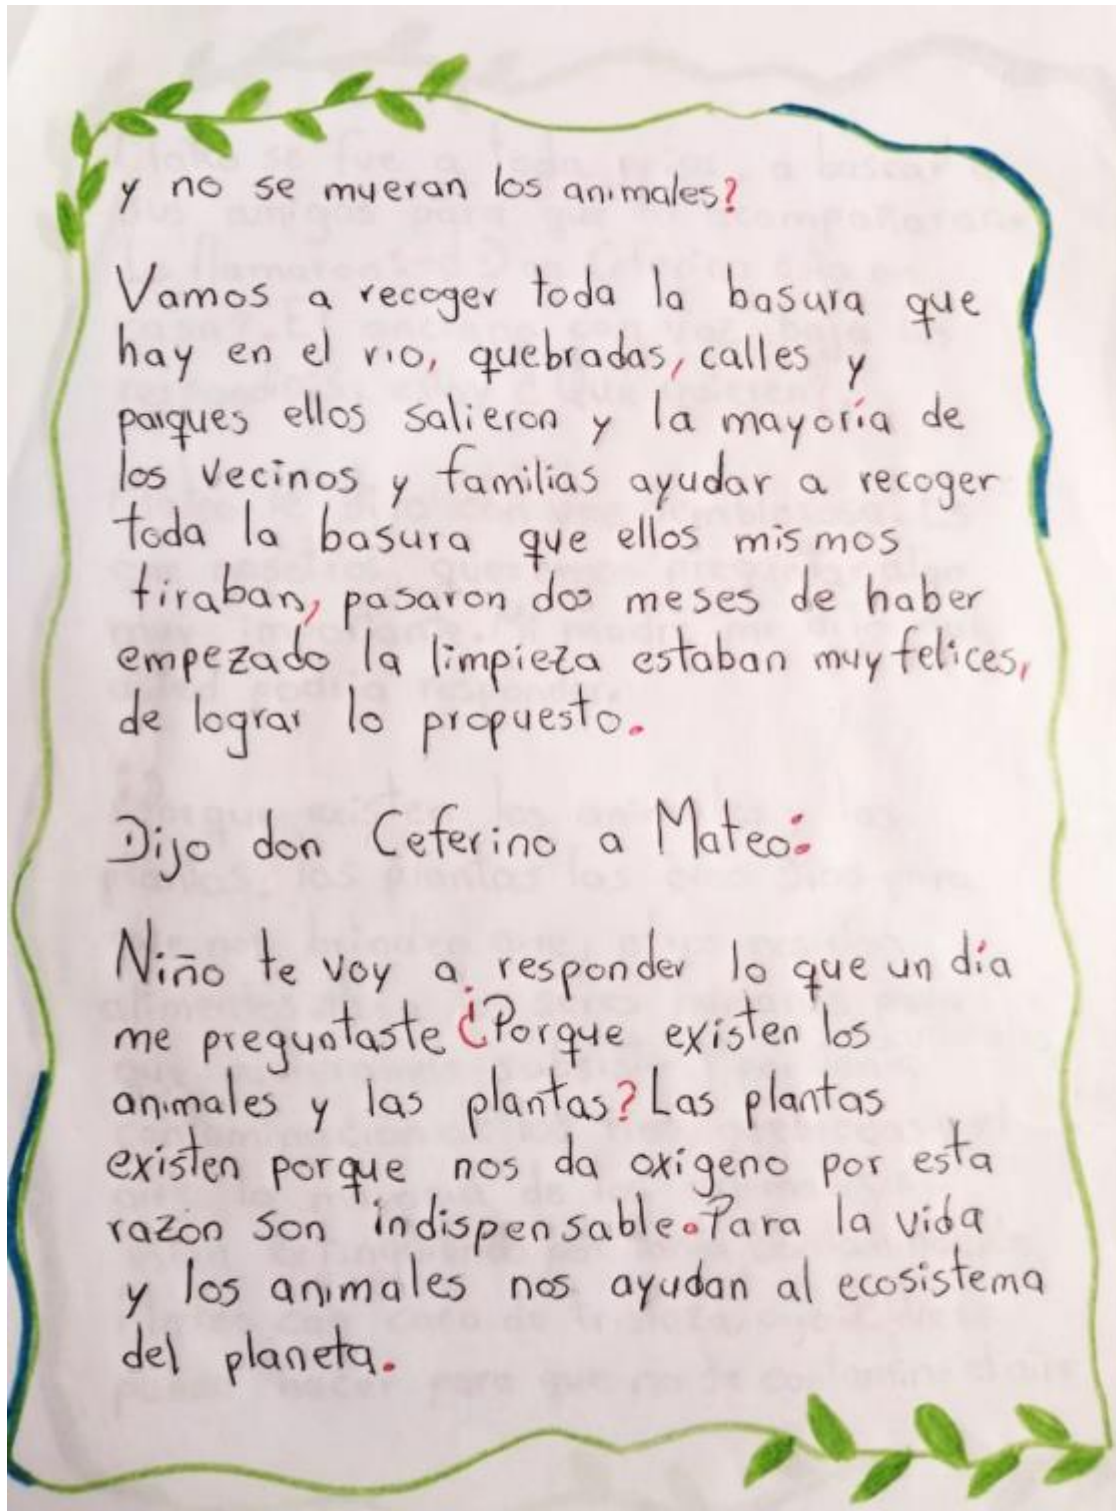 y no se mueran los animales?
Vamos a recoger toda la basura que
hay en el rio, quebradas, calles y
parques ellos salieron y la mayoría de
los vecinos y familias ayudar a recoger
toda la basura que ellos mismos
tiraban, pasaron dos meses de haber
empezado la limpieza estaban muy felices,
de lograr lo propuesto.
Dijo don Ceferino a Mateo:
Niño te voy a responder lo que un día
me preguntaste ¿Porque existen los
animales y las plantas? Las plantas
existen porque nos da oxígeno por esta
razón son indispensable. Para la vida
y los animales nos ayudan al ecosistema
del planeta.